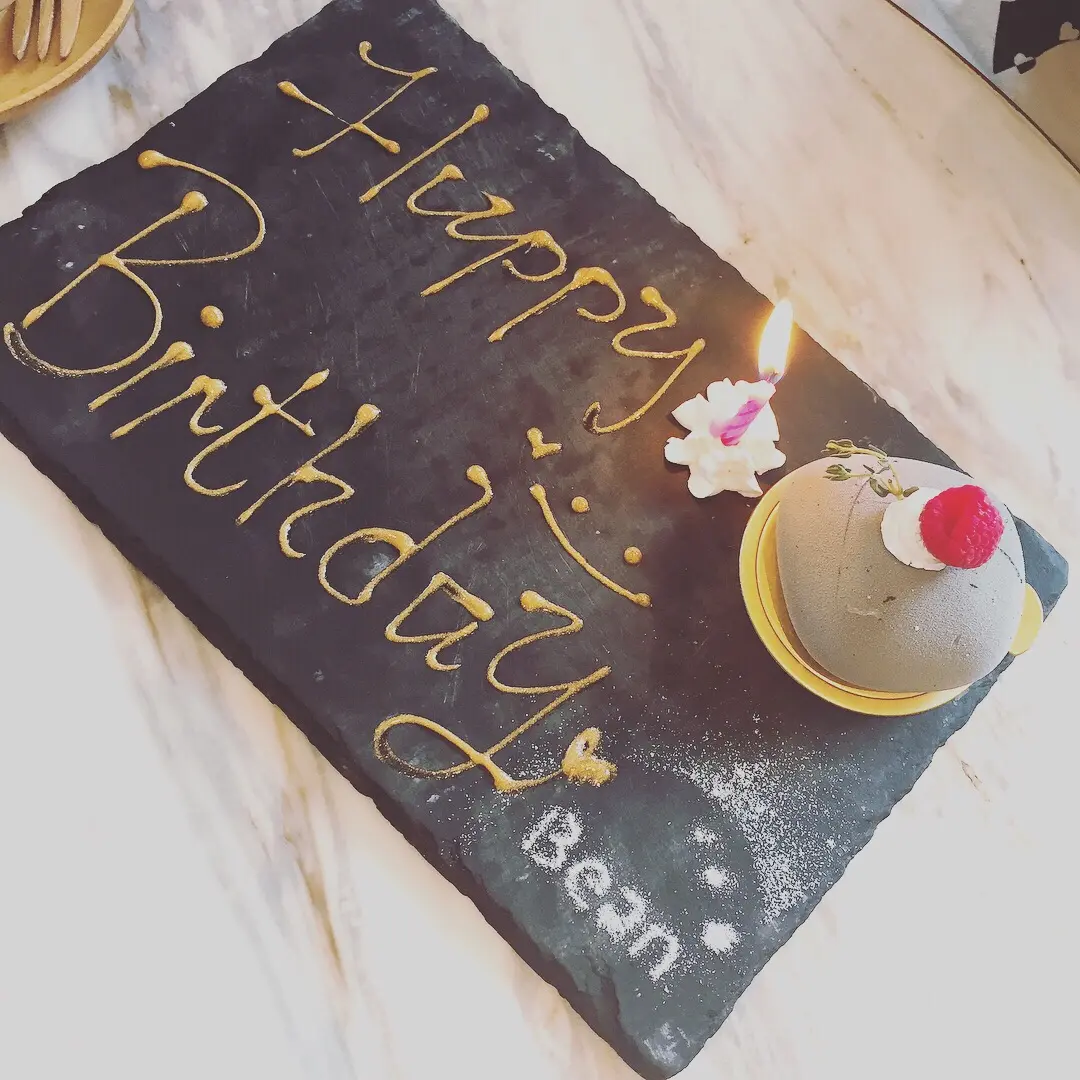 Happy
Birthday
Bean